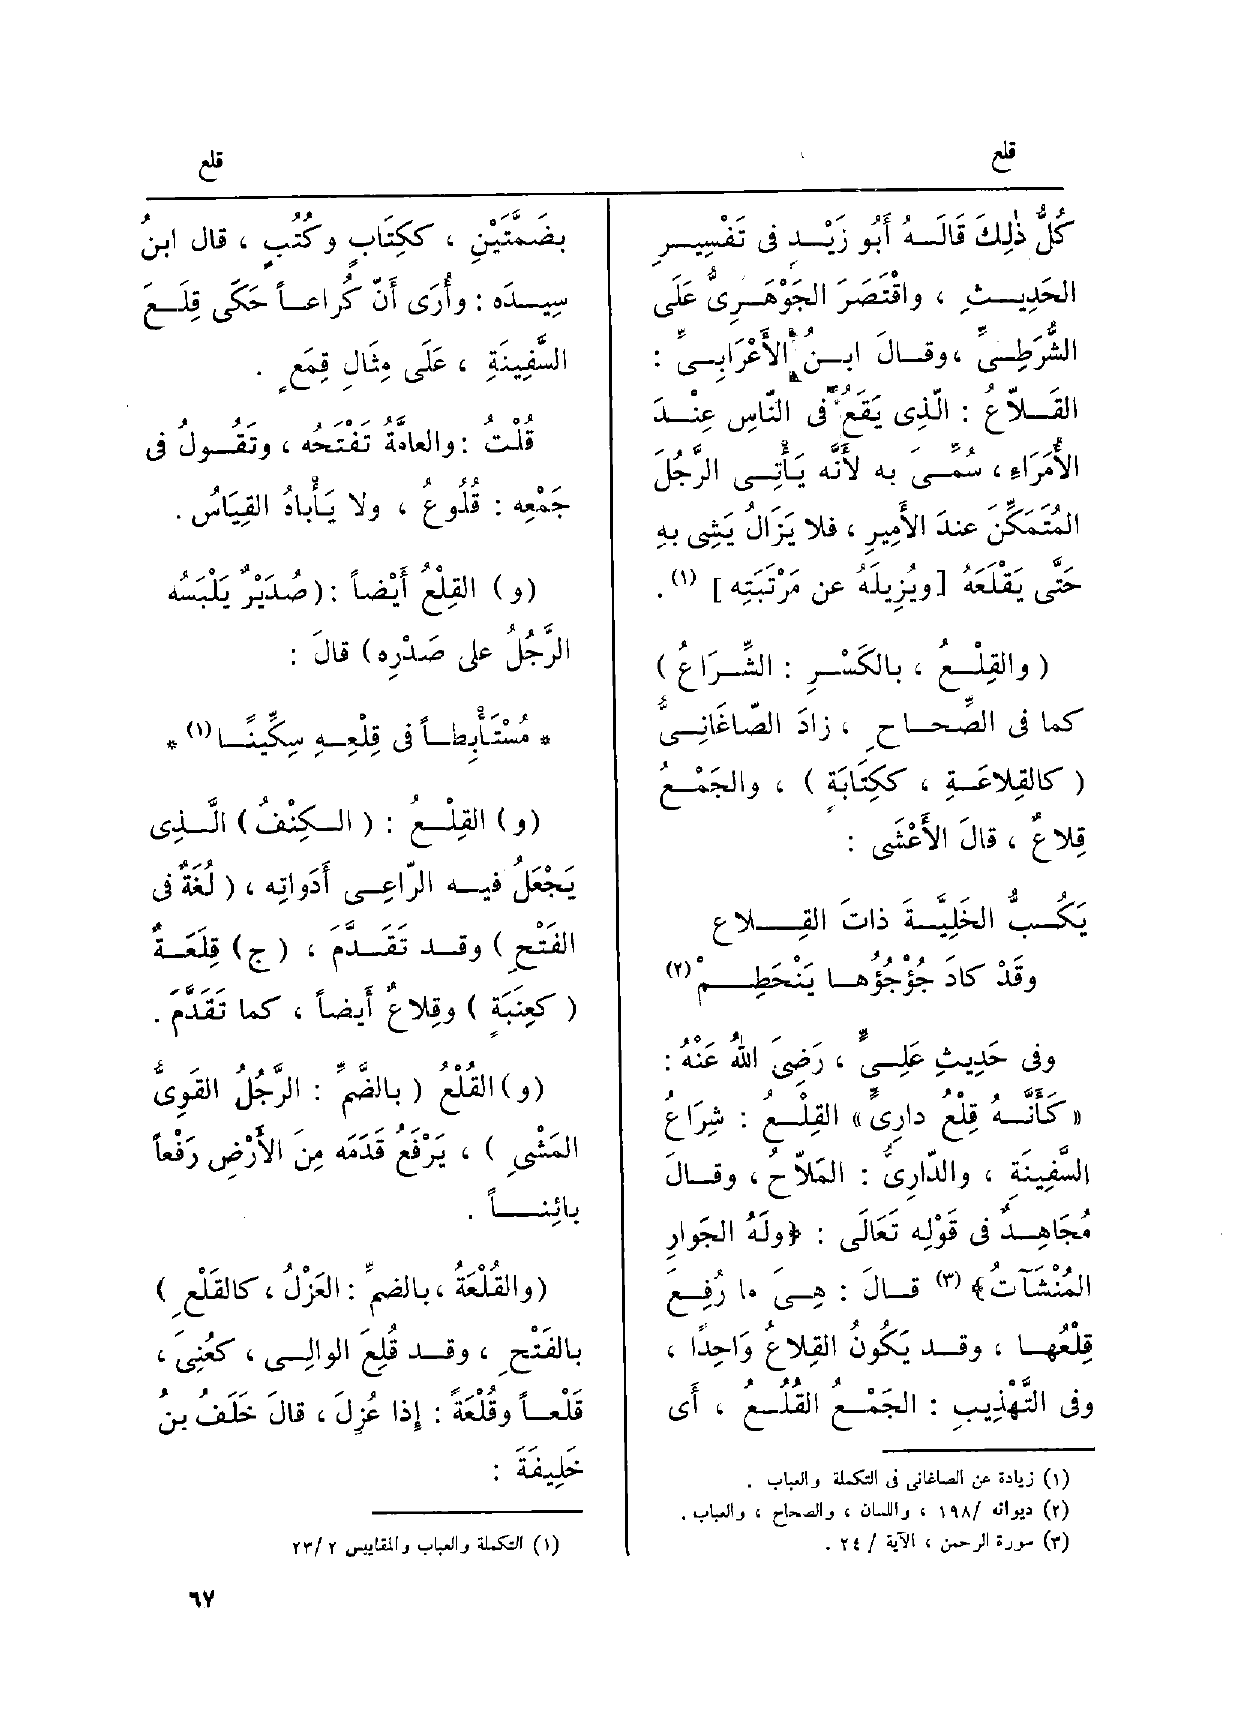 قلع
قلع
كُلُّ ذٰلِكَ قَالَـهُ أَبُو زَيْـد فى تَفْسِيـرِ
الحَدِيـثِ ، واقْتَصَرَ الجَوْهَـرِىُّ عَلَى
الشُّرَطِـىِّ ،وقـالَ ابـنُ الأَعْرَابِـىِّ :
القَـلاّعُ : الّذِى يَقَعُ فى النّاسِ عِنْـدَ
الأُمَرَاءِ ، سُمِّـىَ به لأَنَّه يَأْتِـى الرَّجُلَ
المُتَمَكِّنَ عندَ الأَمِيرِ ، فلا يَزَالُ يَشِى بِهِ
حَتَّى يَقْلَعَهُ [ويُزِيلَهُ عن مَرْتَبَتِه] (١) .
(والقِلْـعُ ، بالكَسْـرِ : الشِّـرَاعُ)
كما فى الصّحـاحِ ، زادَ الصّاغَانِـىُّ
(كالقِلاعَـةِ ، ككِتَابَة) ، والجَمْـعُ
قِلاعٌ ، قالَ الأَعْشَى :
يَكُـبُّ الخَلِيَّـةَ ذاتَ القِـــلاعِ
وقَدْ كادَ جُؤْجُؤُهـا يَنْحَطِـــمْ(٢)
وفى حَدِيثِ عَلِـىٍّ ، رَضِىَ اللهُ عَنْهُ :
«كَأَنَّـهُ قِلْعُ دارِىٍّ» القِلْـعُ : شِرَاعُ
السَّفِينَةِ ، والدّارِىُّ : المَلاّحُ ، وقـالَ
مُجَاهِـدٌ فى قَوْلِه تَعَالَى : ﴿ولَهُ الجَوارِ
المُنْشَآتُ﴾ (٣) قـالَ : هِـىَ ما رُفِـعَ
قِلْعُهـا ، وقـد يَكُونُ القِلاعُ وَاحِدًا ،
وفى التَّهْذِيبِ : الجَمْـعُ القُلُـعُ ، أَى
(١) زيادة عن الصاغانى فى التكملة والعباب .
(٢) ديوانه /١٩٨ ، واللسان ، والصحاح ، والعباب .
(٣) سورة الرحمن ، الآية / ٢٤ .
بضَمَّتَيْنِ ، ككِتَابٍ وكُتُبٍ ، قال ابنُ
سِيـدَه : وأُرَى أَنّ كُراعـاً حَكَى قِلَـعَ
السَّفِينَةِ ، عَلَى مِثَالِ قِمَعٍ .
قُلْتُ :والعامَّةُ تَفْتَحُه ، وتَقُـولُ فى
جَمْعِه : قُلُوعٌ ، ولا يَأْباهُ القِيَاسُ .
(و) القِلْعُ أَيْضاً :(صُدَيْرٌ يَلْبَسُه
الرَّجُلُ على صَدْرِه) قالَ :
* مُسْتَأْبِطـاً فى قِلْعِـهِ سِكِّينًـا(١) *
(و) القِلْـعُ : (الـكِنْفُ) الَّـذِى
يَجْعَلُ فيـه الرّاعِـى أَدَواتِه ، (لُغَةٌ فى
الفَتْحِ) وقـد تَقَـدَّم ، (ج) قِلَعَـةٌ
(كعِنَبَةٍ) وقِلاعٌ أَيضاً ، كما تَقَدَّم .
(و) القُلْعُ (بالضَّمِّ : الرَّجُلُ القَوِىُّ
المَشْىِ) ، يَرْفَعُ قَدَمَه مِنَ الأَرْضِ رَفْعاً
بائِنــاً .
(والقُلْعَةُ ،بالضمِّ : العَزْلُ ، كالقَلْعِ)
بالفَتْحِ ، وقـد قُلِعَ الوالِـى ، كعُنِىَ ،
قَلْعـاً وقُلْعَةً : إذا عُزِلَ ، قالَ خَلَفُ بنُ
خَلِيفَةَ :
(١) التكملة والعباب والمقاييس ٢ /٢٣
٦٧